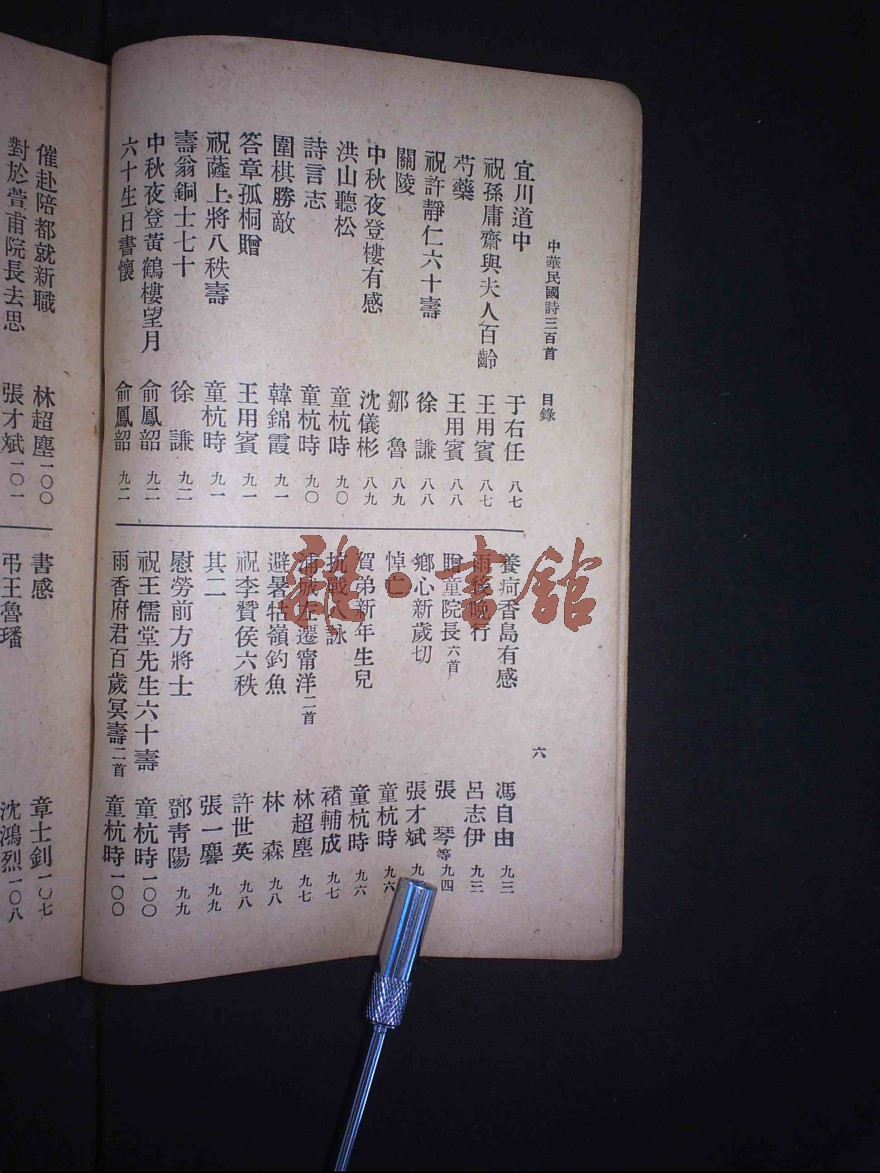 中華民國詩三百首　目錄　六
宜川道中　于右任　八七
祝孫庸齋與夫人百齡　王用賓　八七
芍藥　王用賓　八八
祝許靜仁六十壽　徐謙　八八
關陵　鄒魯　八九
中秋夜登樓有感　沈儀彬　八九
洪山聽松　童杭時　九〇
詩言志　童杭時　九〇
圍棋勝敵　韓錦霞　九一
答章孤桐贈　王用賓　九一
祝薩上將八秩壽　童杭時　九一
壽翁銅士七十　徐謙　九二
中秋夜登黃鶴樓望月　俞鳳韶　九二
六十生日書懷　俞鳳韶　九二
養疴香島有感　馮自由　九三
雨後晚行　呂志伊　九三
贈童院長六首　張琴等　九四
鄉心新歲切　張才斌　九
悼亡　童杭時　九六
賀弟新年生兒　童杭時　九六
抗戰八詠　褚輔成　九七
遷甯洋二首　林超塵　九七
避暑牯嶺釣魚　林森　九八
祝李贊侯六秩　許世英　九八
其二　張一麐　九九
慰勞前方將士　鄧青陽　九九
祝王儒堂先生六十壽　童杭時　一〇〇
雨香府君百歲冥壽二首　童杭時　一〇〇
催赴陪都就新職　林超塵　一〇〇
對於萱甫院長去思　張才斌　一〇一
書感　章士釗　一〇七
弔王魯璠　沈鴻烈　一〇八
雜·書館